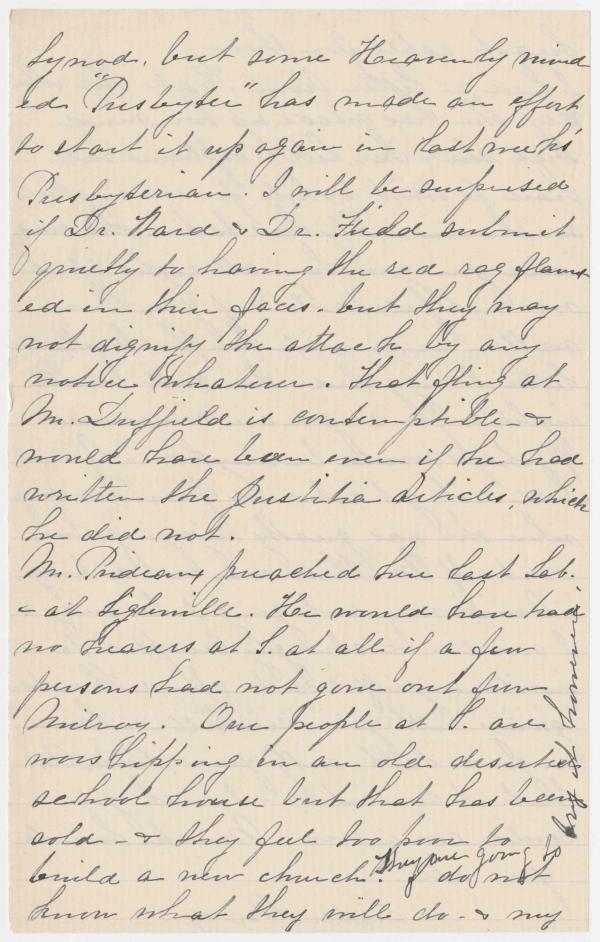 Synod, but some Heavenly mind
ed "Presbyter" has made an effort
to start it up again in last week's
Presbyterian. I will be surprised
if Dr. Ward & Dr. Field submit
quietly to having the red rag flaunt
ed in their faces. but they may
not dignify the attack by any
notice whatever. That fling at
Mr. Duffield is contemptible - &
would have been even if he had
written the Justitia articles, which
he did not.
Mr. Prideaux preached here last Sab.
- at Siglerville. He would have had
no hearers at S. at all if a few
persons had not gone out from
Milroy. Our people at S. are
worshipping in an old deserted
school house but that has been
sold - & they feel too poor to
build a new church. I do not
know what they will do - & my
They are going to
try it however.